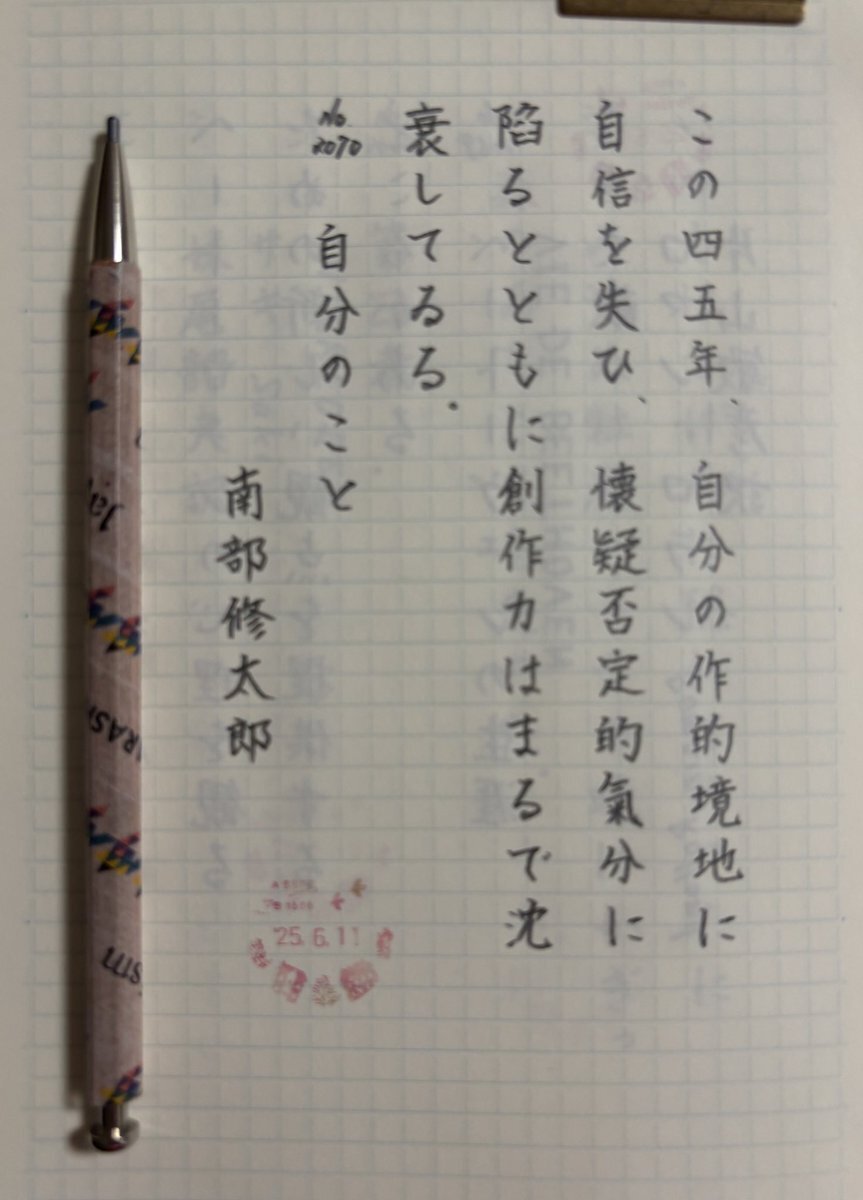 この四五年、自分の作的境地に
自信を失ひ、懐疑否定的氣分に
陥るとともに創作力はまるで沈
衰してゐる。
No.2070
自分のこと
南部修太郎
25.6.11